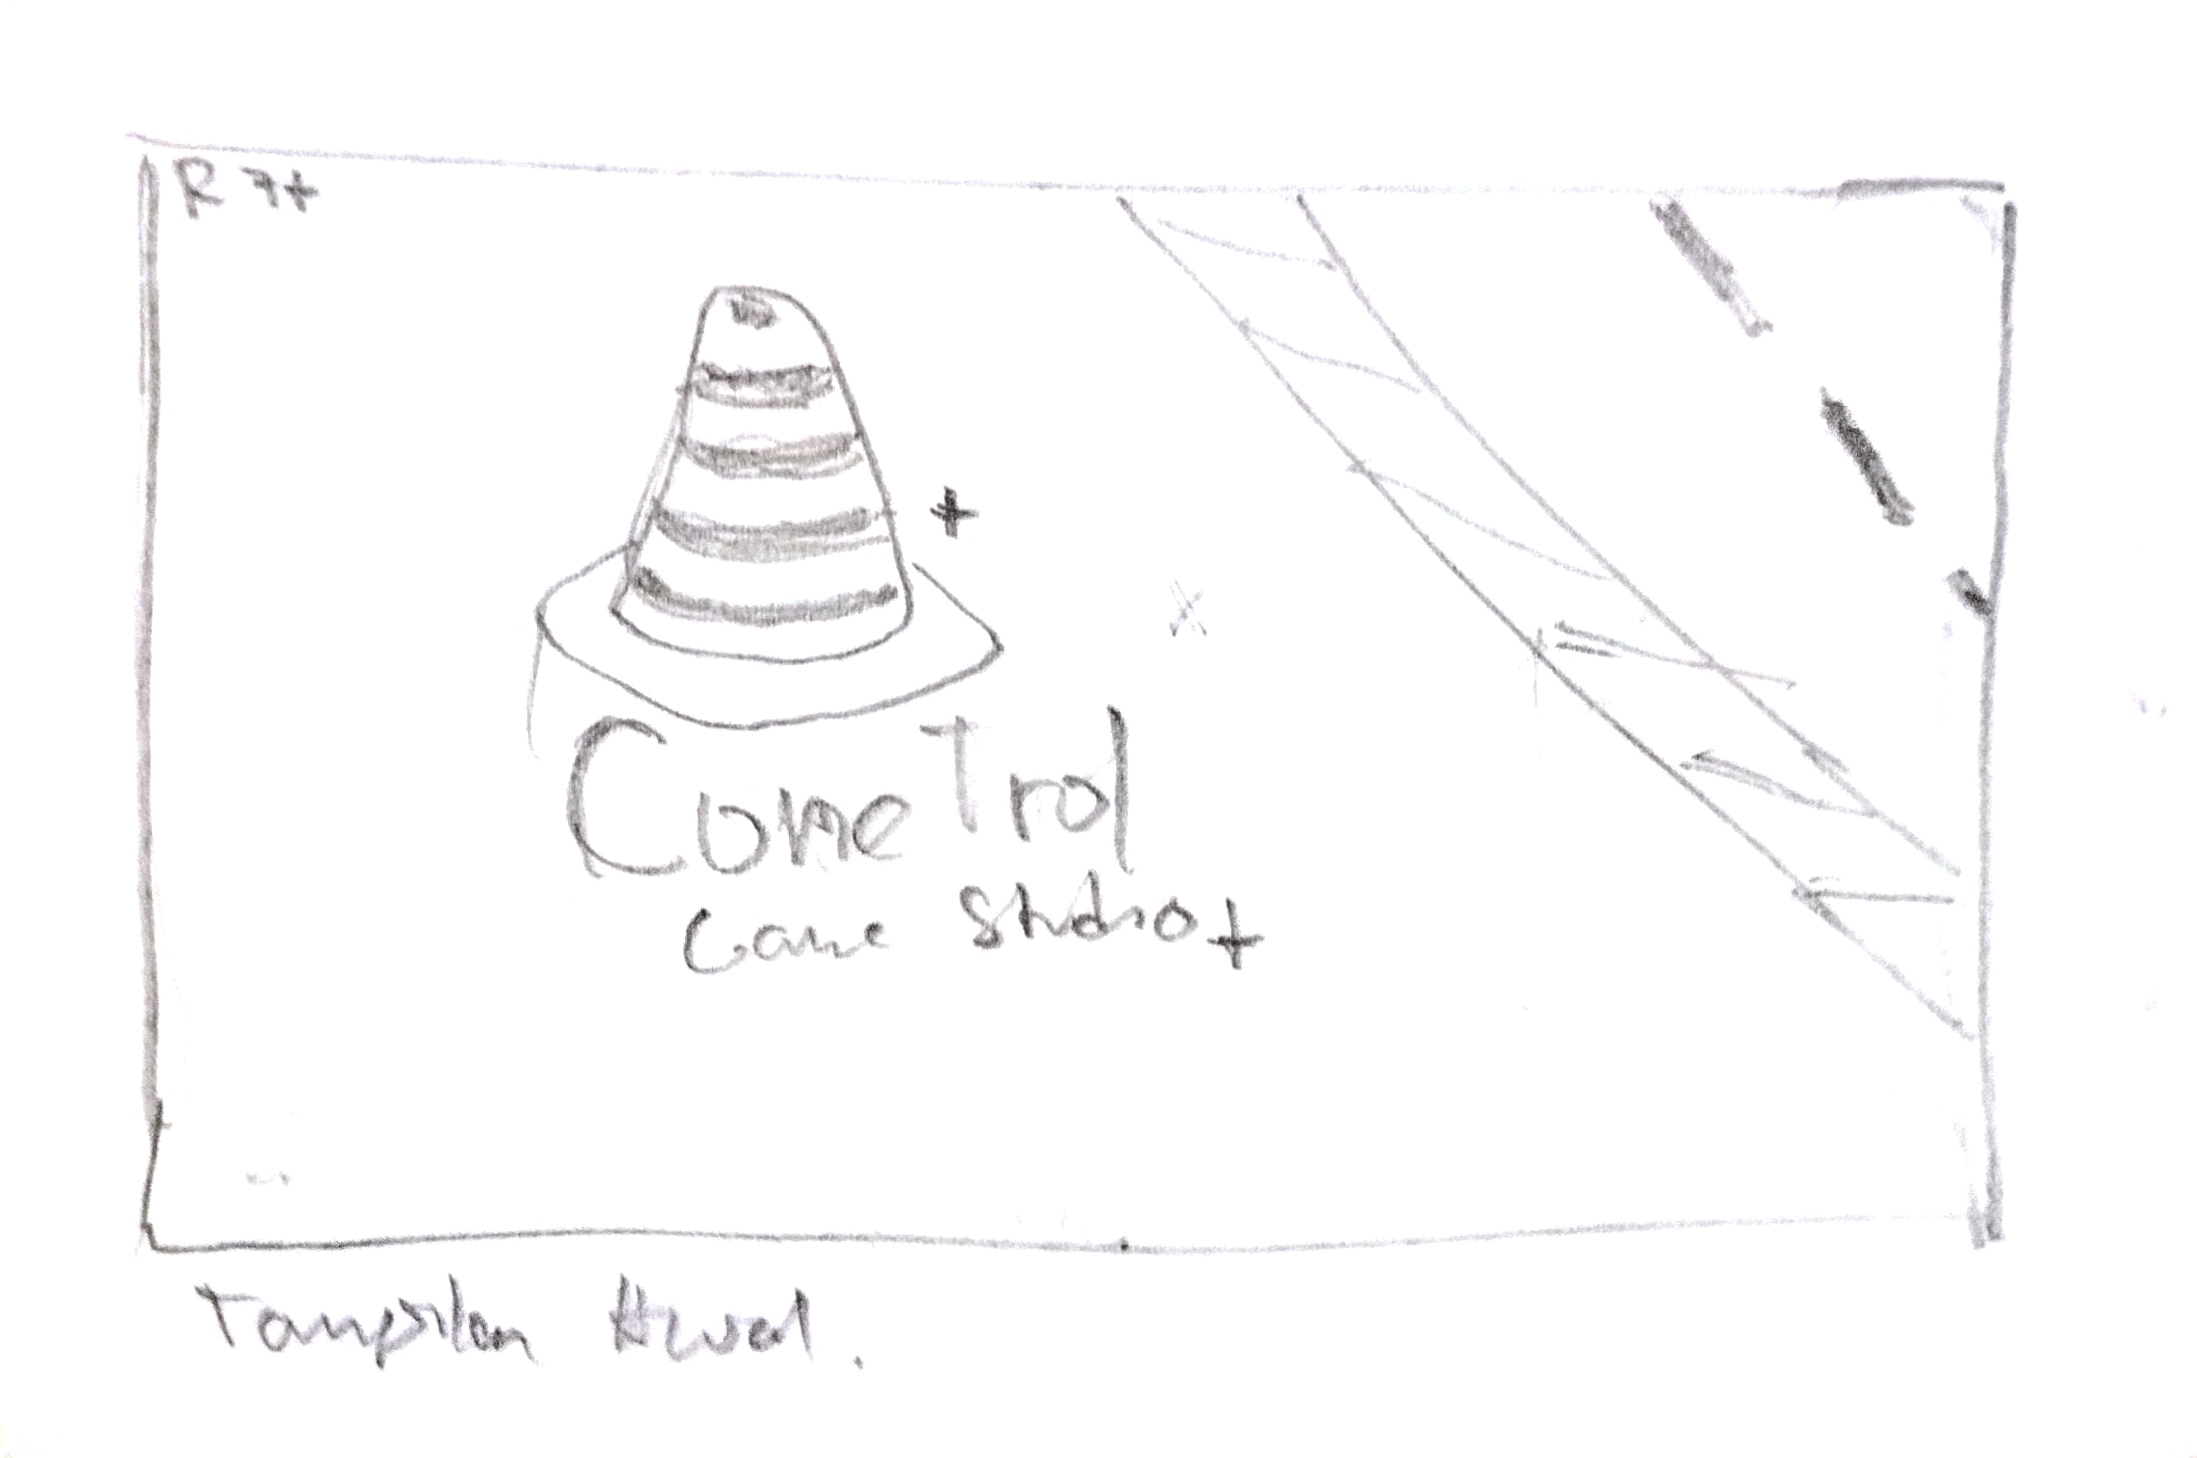 R 7+
+
ConeTrol
Game Studio+
Tampilan Awal.